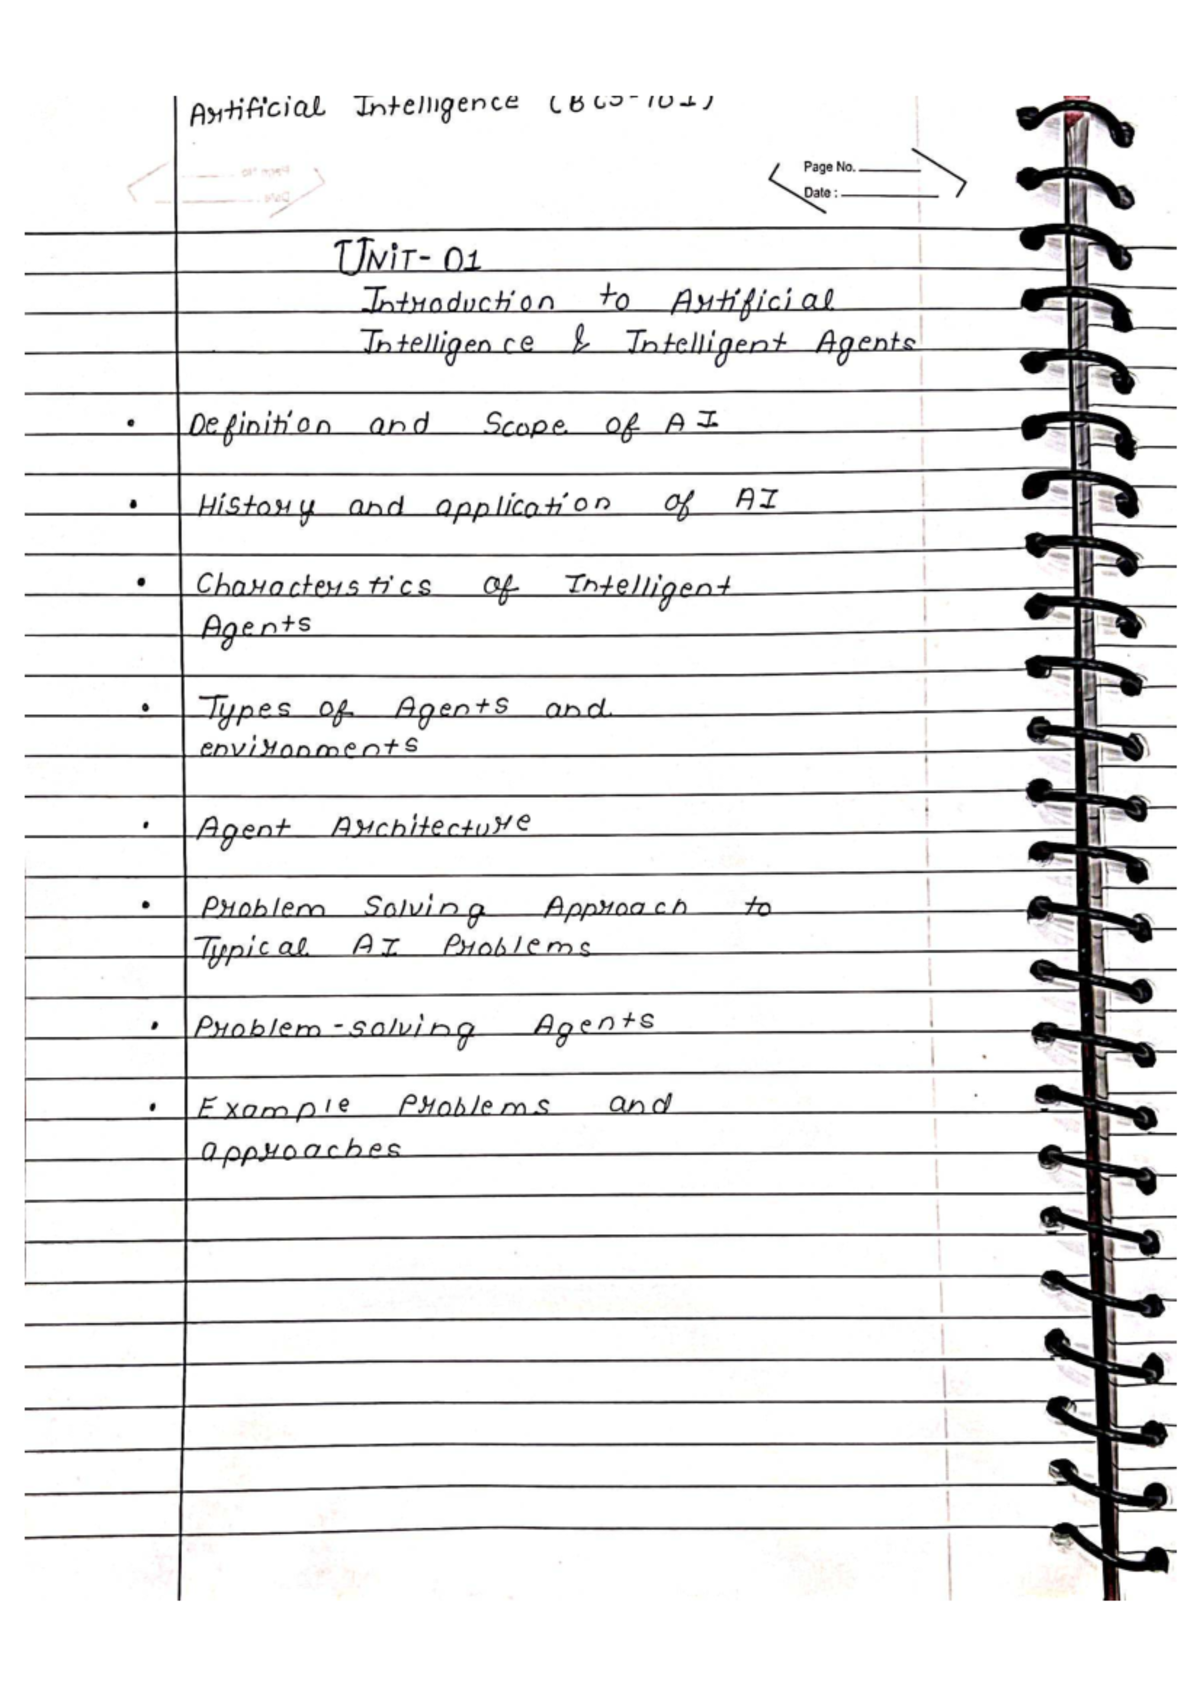 Artificial Intelligence
Page No.
Date :
UNIT-01
Introduction to Artificial
Intelligence & Intelligent Agents
• Definition and Scope of AI
• History and application of AI
• Characterstics of Intelligent
Agents
• Types of Agents and
environments
• Agent Architecture
• Problem Solving Approach to
Typical AI Problems
• Problem-solving Agents
• Example Problems and
approaches